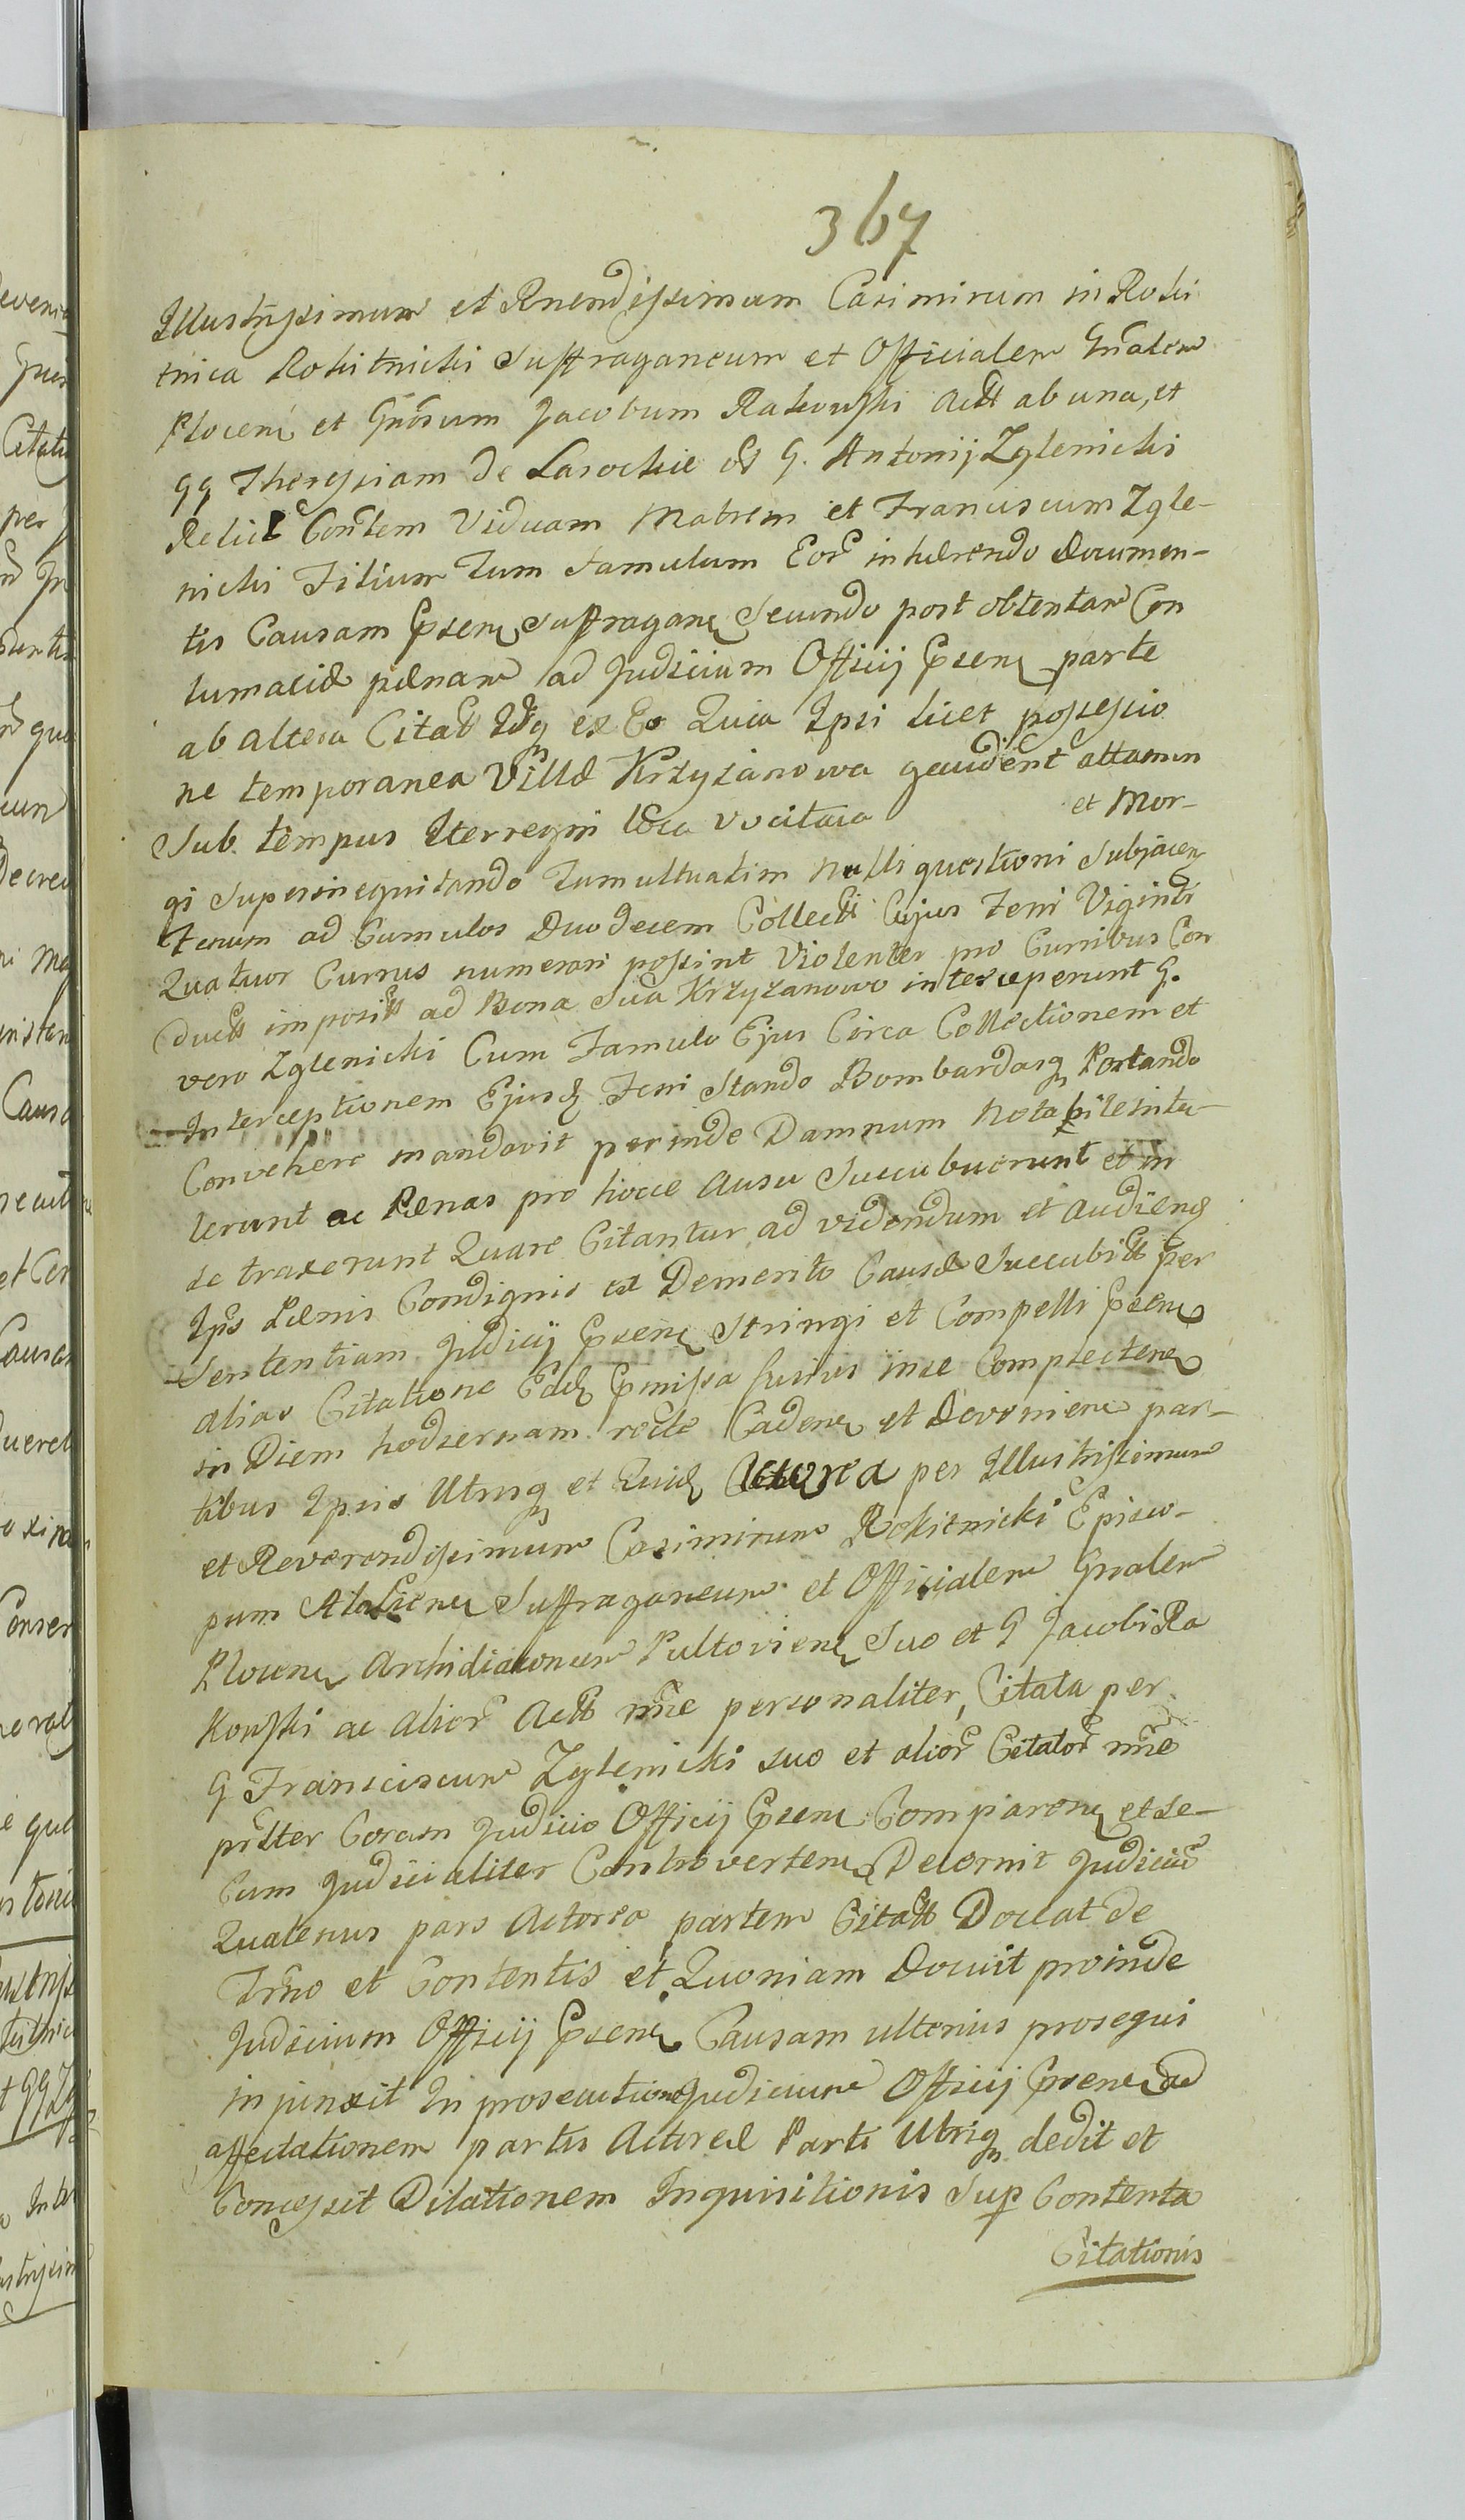 367
Illustrissimum et Rnendissimum Casimirum in Roki
tnica Rokitnicki Suffraganeum et Officialem Gnalem
Plocen et Gnosum Jacobum Rakowski Act ab una, et
GG Theresiam de Lasockie olt G. Antonij Zglenicki
Relict Contem Viduam Matrem et Franciscum Zgle-
nicki Filium Tum famulum Eor inhærendo documen-
tis Causam Psenq Suffraganq Secundo post obtentam Con
tumaciæ pænam ad Judicium Officij Psenq parte
ab altera Citat Idq ex Eo Quia Ipsi licet possessio
ne temporanea Villæ Krzyzanowa gaudent attamen
Sub tempus Iterregni loca vocitata et Mor-
gi Superinequitando Tumultuatim Nulli questioni Subjacen
Fenum ad Cumulos Duodecem Collecti Cujus Feni Viginti
Quatuor Currus numerari possint Violenter pro Curribus Con
duct imposit ad Bona Sua Krzyzanowo interceperunt G.
vero Zglenicki Cum Famulo Ejus Circa Collectionem et
Interceptionem Ejusd Feni Stando Bombardasq Portando
Convehere mandavit perinde Damnum Notabile intu-
lerunt ac Pænas pro hocce Ausu Succubuerunt et in
se traxerunt Quare Citantur ad videndum et Audiend
Ips Pænis Condignis ex Demerito Causæ Succubitt per
Sententiam Judicij Psenq Stringi et Compelli Psenq
alias Citatione Ead Pmissa fusius inse Complectenq
in Diem hodiernam recte Cadenq et Devenienq par-
tibus Ipsis Utrisq et Quid Actorea per Illustrissimum
et Reverendissimum Casimirum Rokitnicki Episco-
pum Suffraganeum et Officialem Gnalem
Plocenq Archidiaconum Pultovienq Suo et G Jacobi Ra
kowski ac alior Act nne personaliter, Citata per
G Franciscum Zglenicki suo et alior Citator nne
prstter Coram Judicio Officij Psenq Comparenq et se-
Cum Judicialiter Controvertenq Decernit Judiciu
Quatenus pars Actorea partem Citatt Doceat de
Trno et Contentis et Quoniam Docuit proinde
Judicium Officij Psenq Causam ulterius prosequi
injunxit In prosecutione Judicium Officij Psenq ad
affectationem partis Actoreæ Parti Utriq dedit et
Concessit Dilationem Inquisitionis Sup Contenta
Citationis